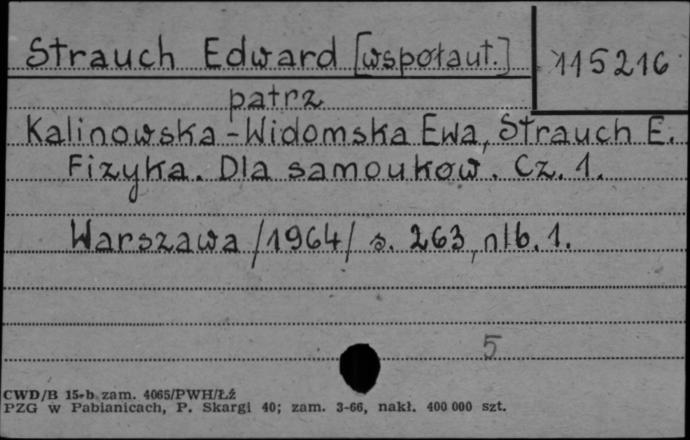 Strauch Edward [współaut.] 115216
patrz
Kalinowska-Widomska Ewa, Strauch E.
Fizyka. Dla samouków. Cz. 1.
Warszawa /1964/ s. 263, nlb. 1.
5
CWD/B 15-b zam. 4065/PWH/Łź
PZG w Pabianicach, P. Skargi 40; zam. 3-66, nakł. 400 000 szt.